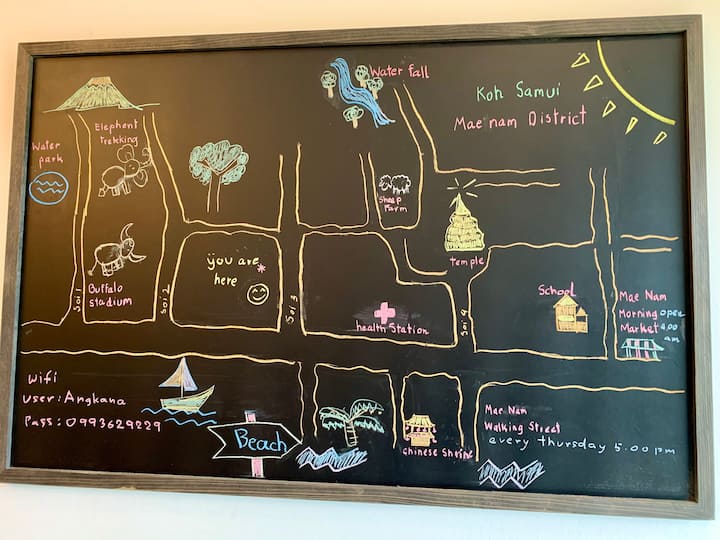 Water fall
Koh Samui
Mae nam District
Elephent
Trekking
Water
park
Sheep
Farm
you are
here
temple
Buffalo
stadium
Soi 1
Soi 2
Soi 3
Soi 4
health Station
School
Mae Nam
Morning open
Market 4.00
am
Wifi
User: Angkana
Pass: 0993629229
Beach
Chinese Shrine
Mae Nam
Walking Street
every thursday 5.00 pm